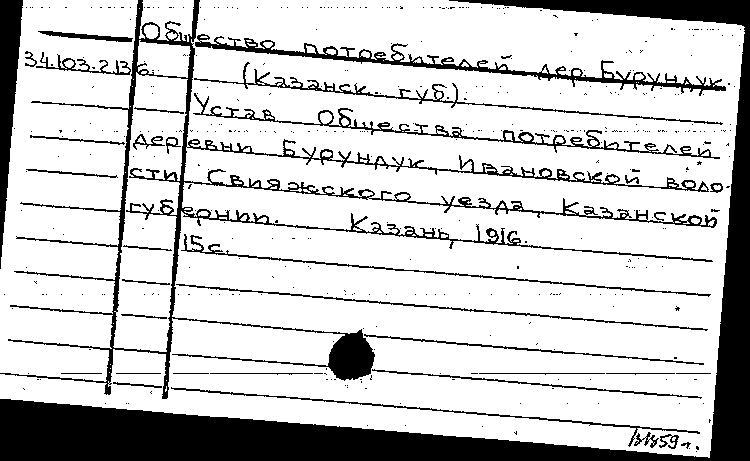 Общество потребителей дер. Бурундук
34.103.2136. (Казанск. губ.).
Устав Общества потребителей
деревни Бурундук, Ивановской воло-
сти, Свияжского уезда, Казанской
губернии. Казань, 1916.
15с.